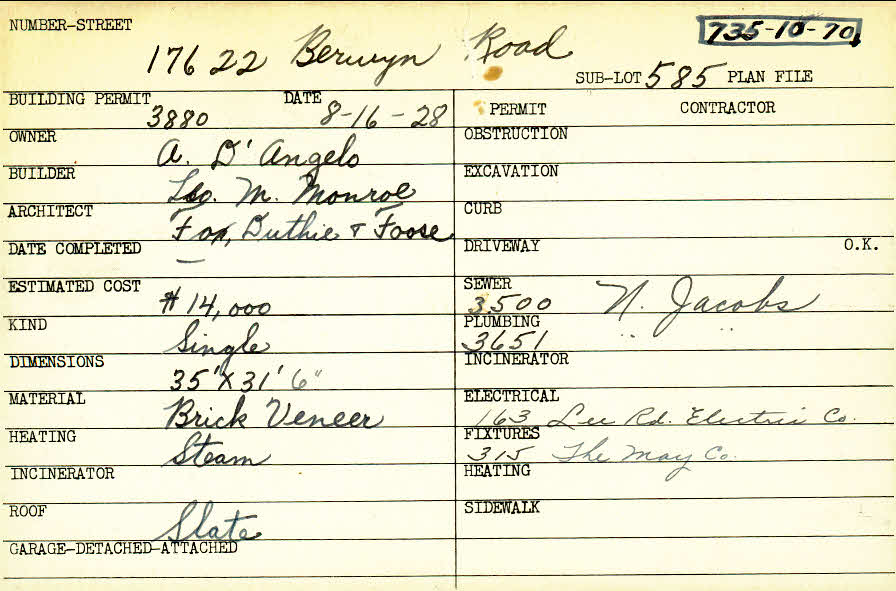 NUMBER-STREET
735-10-70
17622 Berwyn Road
SUB-LOT 585 PLAN FILE
BUILDING PERMIT 3880 DATE 8-16-28
OWNER A. D'Angelo
BUILDER Leo. M. Monroe
ARCHITECT Fox, Duthie & Foose
DATE COMPLETED —
ESTIMATED COST $14,000
KIND Single
DIMENSIONS 35'X31'6"
MATERIAL Brick Veneer
HEATING Steam
INCINERATOR
ROOF Slate
GARAGE-DETACHED-ATTACHED
PERMIT CONTRACTOR
OBSTRUCTION
EXCAVATION
CURB
DRIVEWAY O.K.
SEWER 3500 N. Jacobs
PLUMBING 3651 " "
INCINERATOR
ELECTRICAL 163 Lee Rd. Electric Co.
FIXTURES 315 The May Co.
HEATING
SIDEWALK